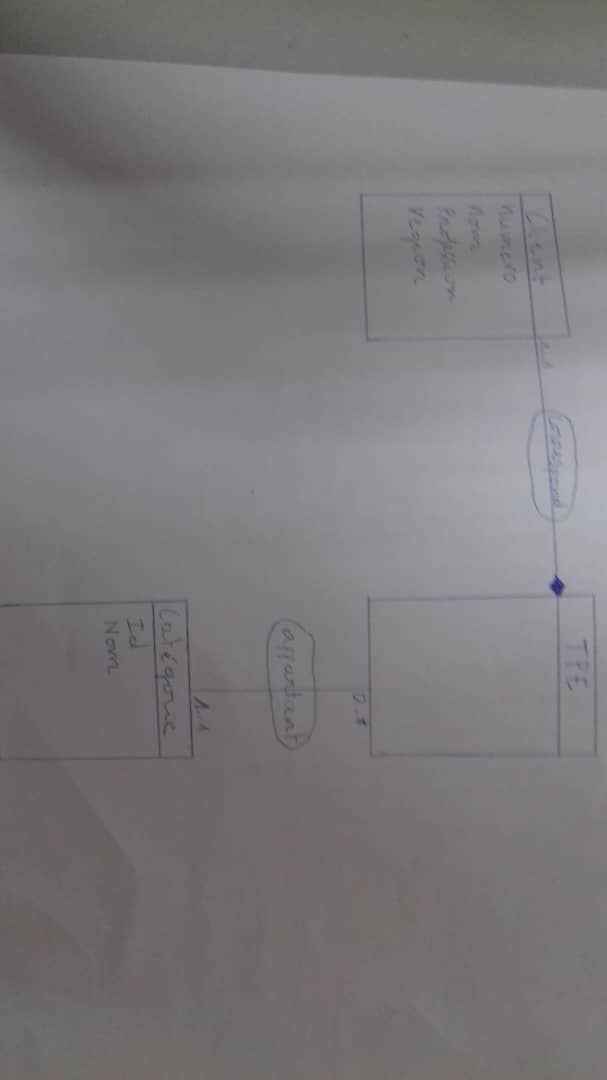 Client
Numero
Nom
Profession
region
1..1
Correspond
TPE
0..*
appartient
1..1
Catégorie
Id
Nom